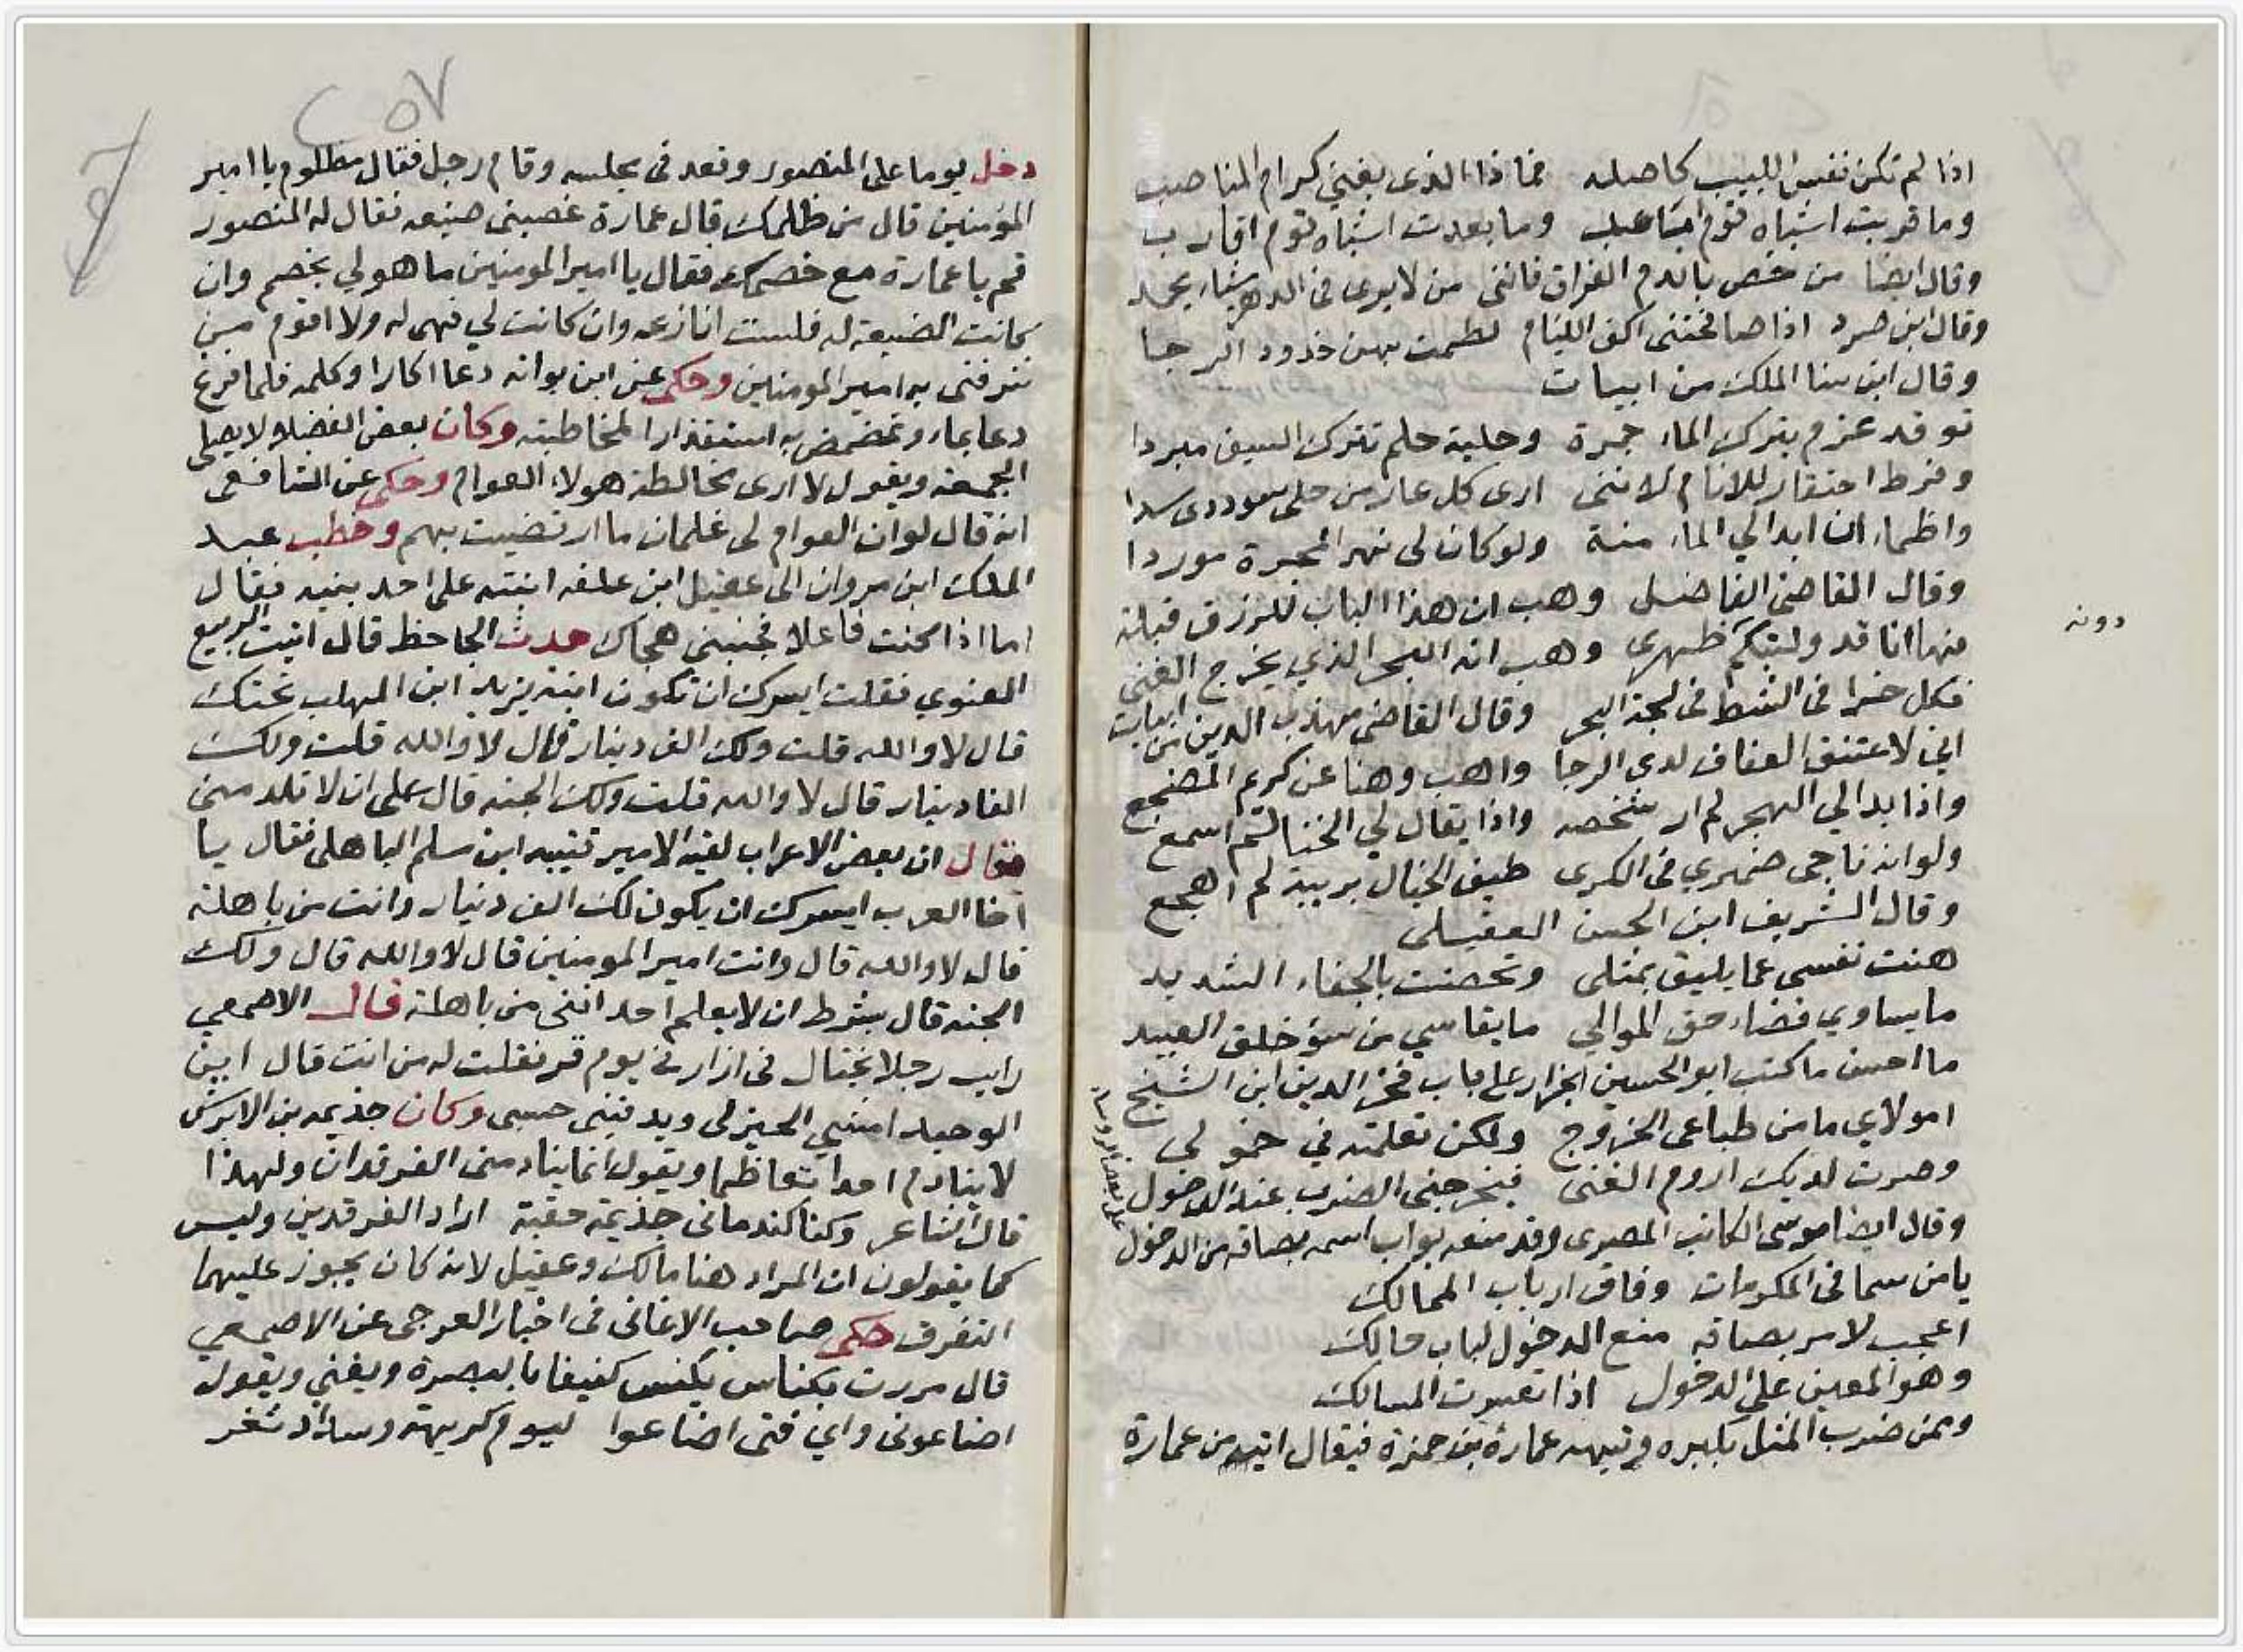 اذا لم تكن نفس اللبيب كاصله فماذا الذى يغني كرام المناصب
وما قربت اشباه قوم اباعد وما بعدت اشباه قوم اقارب
وقال ايضا من خص بالذم الفراق فانني من لا يرى فى الدهر شيا يحمد
وقال ابن صرد اذا صافحتنى اكف اللئام لطمت بهن خدود الرجا
وقال ابن سنا الملك من ابيات
توقد عزم يترك الماء جمرة وحلية حلم تترك السيف مبردا
وفرط احتقار للانام لاننى ارى كل عار من حلى سوددى سدا
واظماء ان ابدا لي الماء منة ولو كان لى نهر المجرة موردا
وقال القاضى الفاضل وهب ان هذا الباب للرزق قبلة
دونه
فها انا قد وليتكم ظهرى وهب انه البحر الذي يخرج الغنى
فكل خرا فى الشط فى لجة البحر وقال القاضى مهذب الدين من ابيات
اني لاعتنق العفاف لدى الرجا واهب وهنا عن كريم المضجع
واذا بدا لي الهجر لم ار شخصه واذا يقال لي الخنا لم اسمع
ولو انه ناجى ضميري فى الكرى طيف الخيال بريبة لم اهجع
وقال الشريف ابن الحسن العقيلى
هنت نفسى عما يليق بمثلى وتحصنت بالجفاء الشديد
ما يساوي قضاء حق الموالي ما يقاسي من سؤ خلق العبيد
ما احسن ما كتب ابو الحسين الجزار على باب فخر الدين ابن الشيخ
امولاي ما من طباعى الخروج ولكن تعلمته في خمولى
وصرت لديك اروم الغنى فيخرجنى الضرب عند الدخول
وقال ايضا موسى الكاتب المصرى وقد منعه بواب اسمه بصاقه من الدخول
على بعض الروسا
يا من سما فى المكرمات وفاق ارباب الممالك
اعجب لامر بصاقه منع الدخول لباب مالك
وهو المعين على الدخول اذا تعسرت المسالك
وممن ضرب المثل بكبره وتيهه عمارة بن حمزة فيقال اتيه من عمارة
٢٥٧
دخل يوما على المنصور وقعد فى مجلسه وقام رجل فقال مظلوم يا امير
المؤمنين قال من ظلمك قال عمارة غصبنى ضيعه فقال له المنصور
قم يا عمارة مع خصمك فقال يا امير المومنين ما هو لي بخصم وان
كانت الضيعة له فلست انازعه وان كانت لي فهى له ولا اقوم من
شرفنى به امير المومنين وحكى عن ابن بوانه دعا اكارا وكلمه فلما فرغ
دعا بماء وتمضمض به استقذارا لمخاطبته وكان بعض الفضلاء لا يصلى
الجمعه ويقول لا ارى مخالطة هولاء العوام وحكى عن الشافعى
انه قال لو ان العوام لى غلمان ما ارتضيت بهم وخطب عبد
الملك ابن مروان الى عقيل ابن علفه ابنته على احد بنيه فقال
اما اذا كنت فاعلا فجنبني هجاك حدث الجاحظ قال اتيت الربيع
الغنوي فقلت ايسرك ان تكون ابنة يزيد ابن المهلب تحتك
قال لا والله قلت ولك الف دينار قال لا والله قلت ولك
الفا دينار قال لا والله قلت ولك الجنه قال على ان لا تلد منى
فقال ان بعض الاعراب لقيه الامير قتيبه ابن سلم الباهلى فقال يا
اخا العرب ايسرك ان يكون لك الف دنيار وانت من باهلة
قال لا والله قال وانت امير المومنين قال لا والله قال ولك
الجنه قال بشرط ان لا يعلم احد اننى من باهلة قال الاصمعي
رايت رجلا يختال فى ازار في يوم قر فقلت له من انت قال ابن
الوحيد امشي الحيزلى ويدفينى حسبى وكان جذيمه بن الابرش
لا ينادم احدا تعاظما ويقول انما ينادمنى الفرقدان ولهذا
قال الشاعر وكنا كندمانى جذيمة حقبة اراد الفرقدين وليس
كما يقولون ان المراد هنا مالك وعقيل لانه كان يجوز عليهما
التفرق حكى صاحب الاغانى فى اخبار العرجى عن الاصمعي
قال مررت بكناس يكنس كنيفا بالبصرة ويغني ويقول
اضاعونى واي فتى اضاعوا ليوم كريهة وسداد ثغر